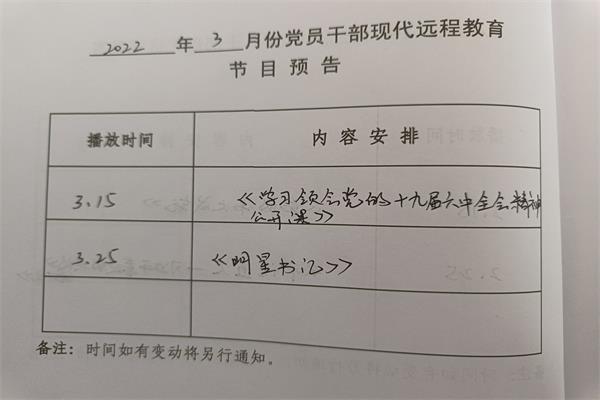 2022 年 3 月份党员干部现代远程教育
节目预告
播放时间 内容安排
3.15 《学习领会党的十九届六中全会精神
公开课》
3.25 《明星书记》
备注：时间如有变动将另行通知。